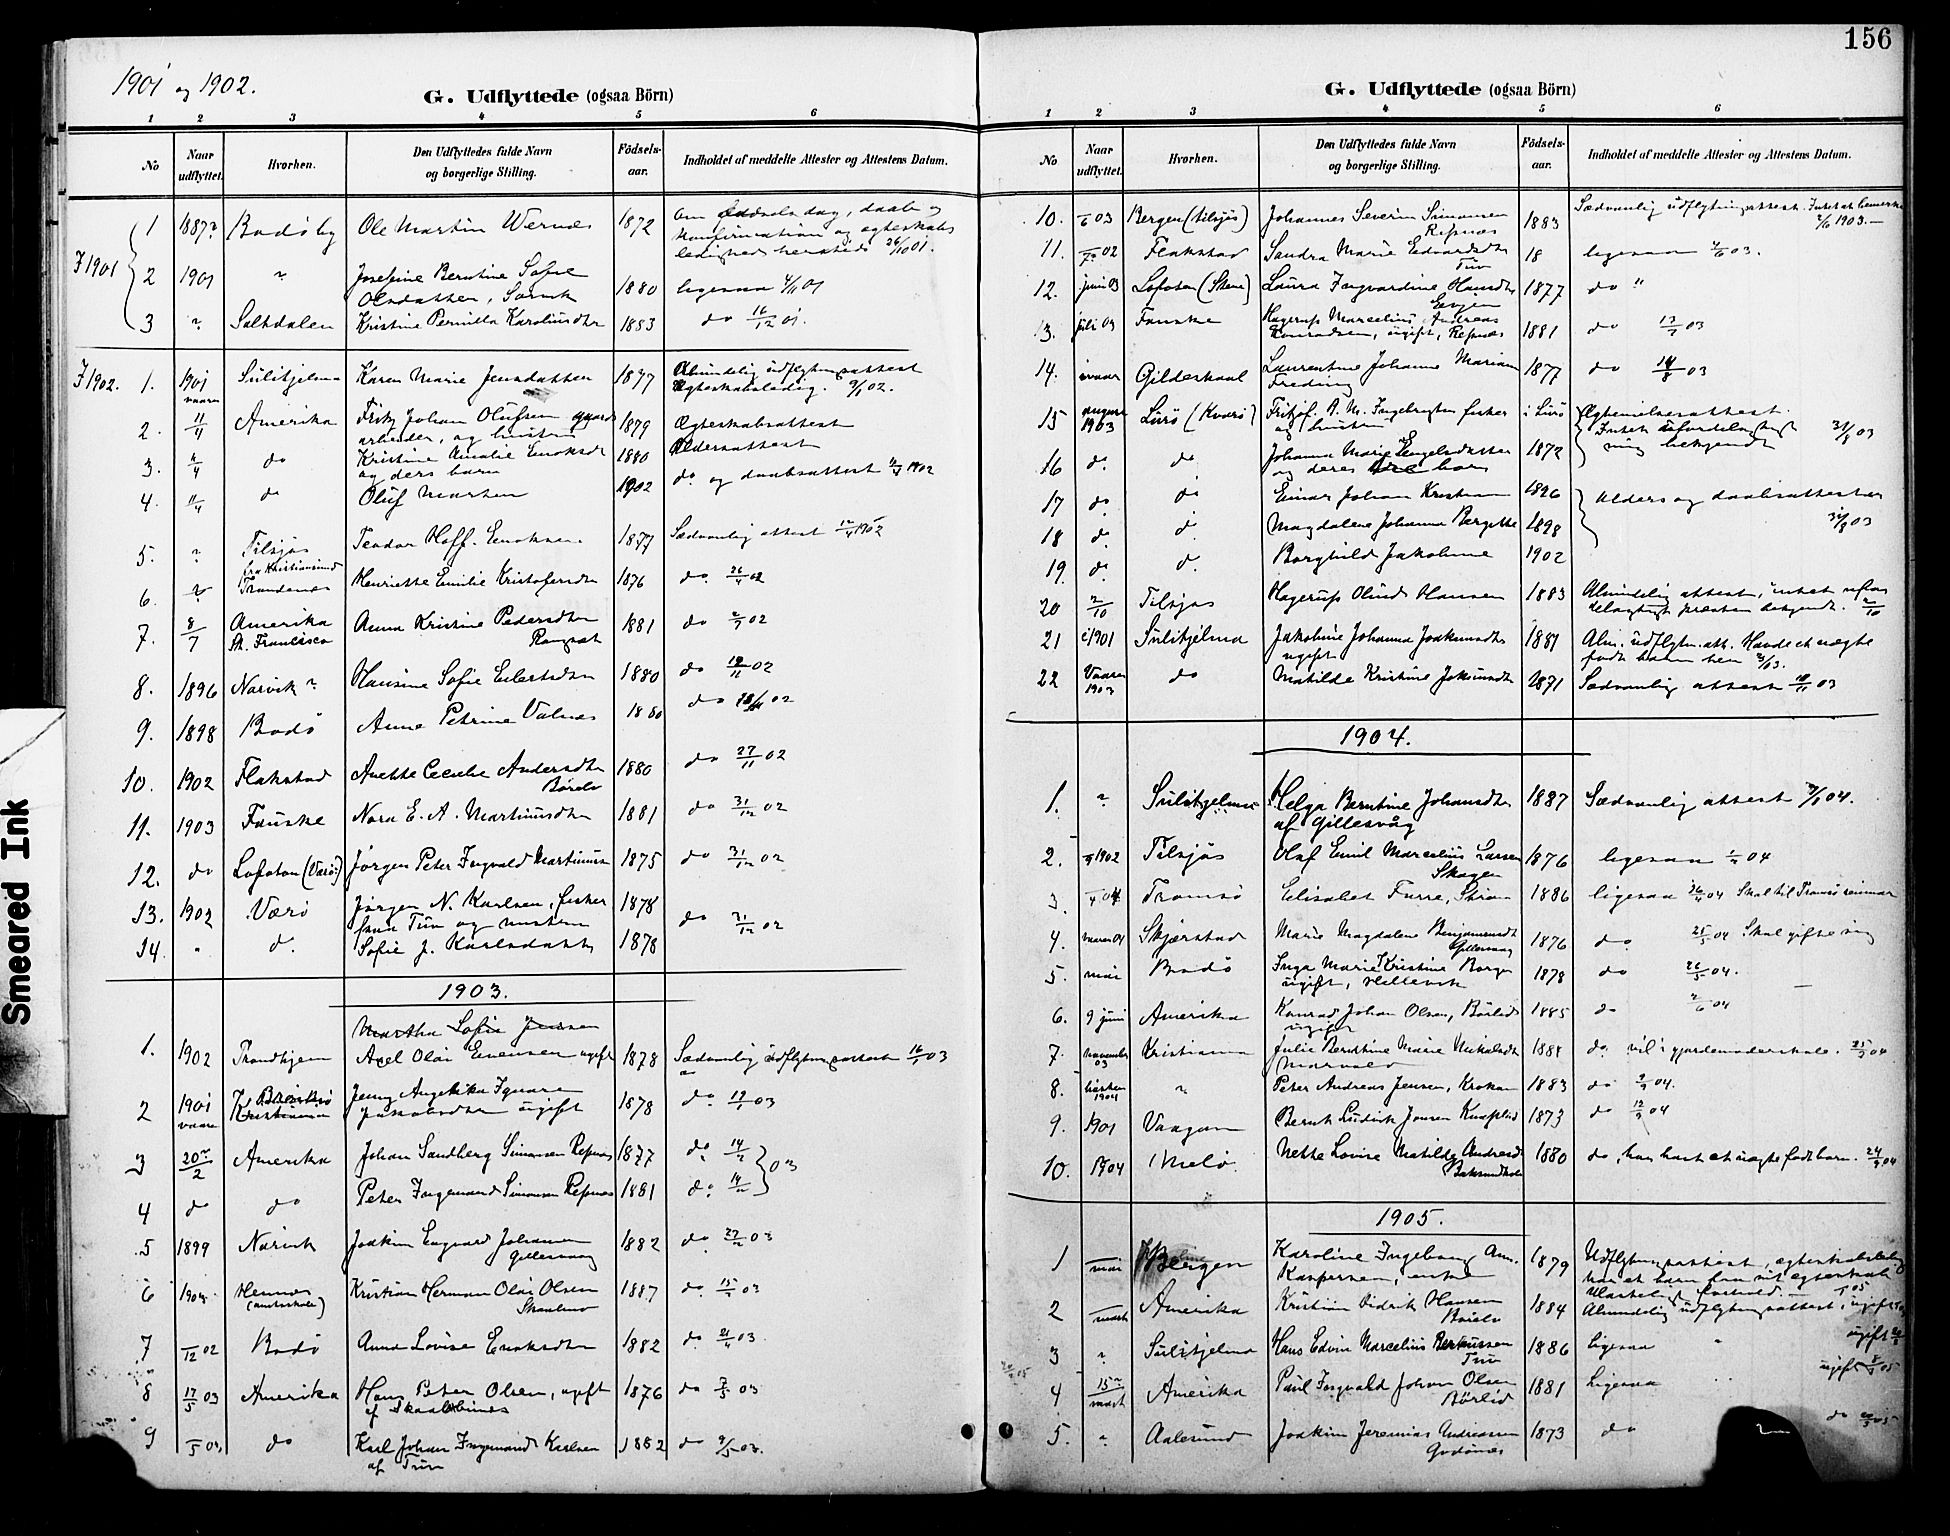 156
1901 og 1902.
G. Udflyttede (ogsaa Börn)
1 2 3 4 5 6
No Naar udflyttet. Hvorhen. Den Udflyttedes fulde Navn og borgerlige Stilling. Födsels-aar. Indholdet af meddelte Attester og Attestens Datum.
I 1901 1 1887? Bodø by Ole Martin Wernes 1872 Om födselsdag, daab og
konfirmation og egteskabs
ledighed 26/10 01.
2 1901 " Josefine Berntine Sofie
Olsdatter, 1880 ligesaa 4/11 01
3 " Saltdalen Kristine Pernilla Karoliusdtr 1883 do 16/12 01.
I 1902. 1. 1901 vaaren Sulitjelma Karen Marie Jensdatter 1877 Almindelig udflytningsattest
Egteskabsledig. 9/1 02.
2. 11/4 Amerika Fritz Johan Olufsen gaards
arbeider, og hustru 1879 Egteskabsattest
3. 11/4 do Kristine Amalie Enoksdtr
og ders barn 1880 Aldersattest
4. 11/4 do Oluf Marten 1902 do og daabsattest 11/3 1902
5. " Tilsjøs
fra Kristiansund Teodor Hoff. Enoksen. 1877 Sædvanlig attest 12/4 1902
6. " Trondenes Henriette Emilie Kristofersdtr 1876 do 26/4 02
7. 8/7 Amerika
St. Francisco Anna Kristine Pedersdtr 1881 do 2/7 02
8. 1896 Narvik " Hansine Sofie Eilertsdtr 1880 do 19/11 02
9. 1898 Bodø Anne Petrine Valnes 1880 do 28/11 02
10. 1902 Flakstad Anette Cecilie Andersdtr
Børelv 1880 do 27/11 02
11. 1903 Fauske Nora E. A. Martinusdtr 1881 do 31/12 02
12. do Lofoten (Værø) Jørgen Peter Ingvald Martinussen 1875 do 31/12 02
13. 1902 Værø Jørgen N. Karlsen, fisker
fra Tuv og hustru 1878 do 31/12 02
14. " do Sofie J. Karlsdatter 1878
1903.
Martha Sofie Jensen
1. 1902 Trondhjem Axel Olai Evensen ugift 1878 Sædvanlig udflytningsattest 16/1 03
2 1901 vaaren Kristiania Jenny Angelika
Jakobsdtr ugift 1878 do 19/1 03
3 20/2 Amerika Johan Sandberg Simonsen Refsnes 1877 do 14/2 } 03
4 do do Peter Ingemand Simonsen Refsnes 1881 do 14/2
5 1899 Narvik Joakim Edvard Johansen
Gillesvaag 1882 do 27/2 03
6 Hennes
(amtsskole) Kristian Herman Olai Olsen 1887 do 15/3 03
7 /12 02 Bodø Anna Lovise Enoksdtr 1882 do 21/4 03.
8 17/5 03 Amerika Hans Peter Olsen, ugift 1876 do 7/5 03
9 /5 03 do Karl Johan Ingemand Karlsen
af Tuv 1882 do 9/5 03.
G. Udflyttede (ogsaa Börn)
1 2 3 4 5 6
No Naar udflyttet. Hvorhen. Den Udflyttedes fulde Navn og borgerlige Stilling. Födsels-aar. Indholdet af meddelte Attester og Attestens Datum.
10. /6 03 Bergen (tilsjøs) Johannes Severin Simonsen
Refsnes 1883 Sædvanlig udflytningsattest. Intet at bemerke
2/6 1903.
11. /7 02 Flakstad Sandra Marie Edvardsdtr
Tuv 18 ligesaa 4/6 03.
12. juni 03 Lofoten (Stene) Laura Ingvardine Hansdtr
Evjen 1877 do "
13. juli 03 Fauske Hagerup Marcelius Andreas
Konradsen, ugift, Refsnes 1881 do 13/7 03
14. ivaar Gildeskaal Laurentine Johanne Marian
Freding 1877 do 14/8 03
15 august 1903 Lurø (Kvarø) Fritjof. A. M. Ingebrigtsen fisker
og hustru i Lurø Egtevielsesattest.
Intet ufordelagtigt
mig bekjendt 31/8 03
16 do. do Johanna Marie Engelsdatter
og deres børn 1872
17 do. do Einar Johan Kristian 1896 Alders og daabsattester
31/8 03
18 do. do Magdalene Johanna Bergitte 1898
19. do. do. Borghild Jakobine 1902
20 2/10 Tilsjøs Hagerup Olaus Hansen 1883 Almindelig attest, intet ufor
delagtigt præsten bekjendt. 2/10
21 i 1901 Sulitjelma Jakobine Johanna Joakimsdtr
ugift 1881 Alm. udflytn. att. Havde et uægte
født barn
22 Vaaren 1903 do Matilde Kristine 1871 Sædvanlig attest 18/11 03
1904.
1. " Sulitjelma Helga Berntine Johansdtr
af Gillesvåg 1887 Sædvanlig attest 3/1 04.
2. 1902 Tilsjøs Olaf Emil Marcelius Larsen
Skagen 1876 ligesaa 1/2 04
3. /4 04 Tromsø Elisabet Furre, Strøm 1886 ligesaa 26/4 04 Skal til Tromsø seminar
4. vaaren 04 Skjerstad Marie Magdalene Benjaminsdtr
Gillesvaag 1876 do. 25/5 04 Skal gifte sig
5. mai Bodø Inga Marie Kristine Borge
ugift, 1878 do 26/5 04.
6. 9 juni Amerika Konrad Johan Olsen, Børlid
ugift 1885 do 2/6 04
7. november 03 Kristiania Julie Berntine Marie Mikalsdtr 1881 do. vil i gjordemoderskole. 25/7 04
8. høsten 1904 " Peter Andreas Jensen, Krokan 1883 do 2/9 04.
9. 1901 Vaagan Bernt Ludvik Jensen Knaplund 1873 do 12/9 04
10. 04 Melø. Nette Lovise Matilde Andersdtr 1880 do, har havt et uægte født barn. 24/9 04
1905.
1 mai Bergen Karoline Ingeborg Ane
Kaspersen, enke 1879 Udflytningsattest, egteskabsledig
har et barn fra sit egteskab
2 marts Amerika Kristian Didrik Hansen
Børelv 1884 Almindelig udflytningsattest, ugift
3 " Sulitjelma Hans Edvin Marcelius
Tuv 1886 ligesaa " ugift
4 15 marts Amerika Paul Ingvald Johan Olsen
Børlid 1881 Ligesaa " ugift 8/3 05
5. " Aalesund Joakim Jeremias Andreassen
Godønes 1873 do
Smeared Ink